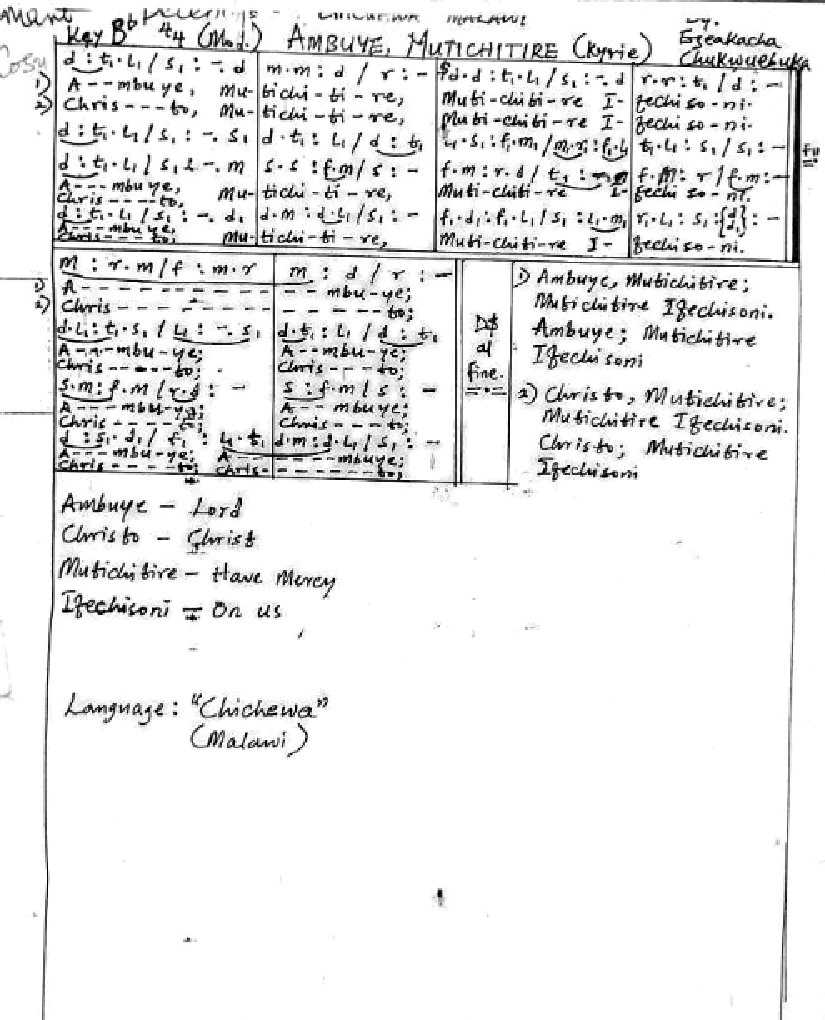 CHICHEWA MALAWI
Key Bb 4/4 (Mod.) AMBUYE, MUTICHITIRE (Kyrie) By. Ezeakacha Chukwuebuka
d : t₁ . l₁ / s₁ : - . d | m . m : d / r : - | d . d : t₁ . l₁ / s₁ : - . d | r . r : t₁ / d : -
1) A - - - mbuye, Mu- | tichi - ti - re, | Muti - chiti - re I - | zechiso - ni.
2) Chris - - - to, Mu- | tichi - ti - re, | Muti - chiti - re I - | zechiso - ni.
d : t₁ . l₁ / s₁ : - . s₁ | d . t₁ : l₁ / d : t₁ | t₁ . l₁ : s₁ / s₁ : -
d : t₁ . l₁ / s₁ : - . m | s . s : f . m / s : - | f . m : r . d / t₁ | f . m : r / f . m : -
A - - - mbuye, Mu- | tichi - ti - re, | Muti - chiti - re I - | zechi so - ni.
Chris - - - - to,
d : t₁ . l₁ / s₁ : - . d₁ | d . m : d . l₁ / s₁ : - | f₁ . d₁ : f₁ . l₁ / s₁ : l₁ . m₁ | r₁ . l₁ : s₁ : {d d₁} : -
A - - - mbuye,
Chris - - - to, Mu- | tichi - ti - re, | Muti - chiti - re I - | zechiso - ni.
m : r . m / f : m . r | m : d / r : -
1) A - - - - - - - - - - mbu - ye;
2) Chris - - - - - - - - - - to;
d . l₁ : t₁ . s₁ / l₁ : - . s₁ | d . t₁ : l₁ / d : t₁
A - - - mbu - ye; | A - - mbu - ye;
Chris - - - - - to; | Chris - - - - to;
s . m : f . m / r . d : - | s : f . m / s : -
A - - - mbu - ye; | A - - mbuye;
Chris - - - - to; | Chris - - - to;
d : s₁ . d₁ / f₁ : l₁ . t₁ | d . m : d . l₁ / s₁ : -
A - - - mbu - ye; A - - - - - - - mbuye;
Chris - - - - to; Chris - - - - - - - to;
D$
al
fine.
1) Ambuye, Mutichitire;
Mutichitire Izechisoni.
Ambuye; Mutichitire
Izechisoni
2) Christo, Mutichitire;
Mutichitire Izechisoni.
Christo; Mutichitire
Izechisoni
Ambuye - Lord
Christo - Christ
Mutichitire - Have Mercy
Izechisoni = On us
Language: "Chichewa"
(Malawi)